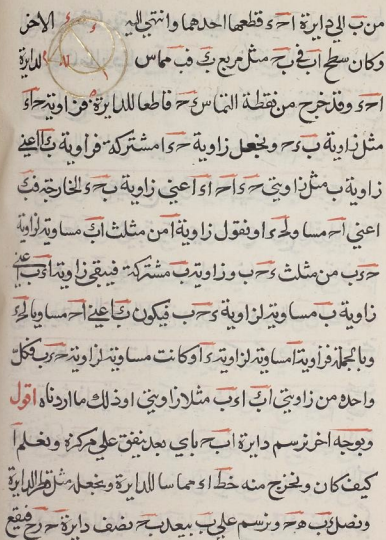 من ب الى دايرة ا ح ء قطعها احدهما وانتهى اليه الاخر
وكان سطح اب فى ب ح مثل مربع ب ء ف ب ء مماس لدايرة
ا ح ء وقد خرج من نقطة التماس ء ح قاطعا للدايرة فزاوية ح ء ا
مثل زاوية ب ء ح ونجعل زاوية ح ء ا مشتركة فزاوية ب ء ا اعنى
زاوية ب مثل زاويتى ح ء ا ح ا ء اعنى زاوية ب ح ء الخارجة ف ب ء
اعنى ا ح مساو ل ح ء او نقول زاوية ا من مثلث ا ب ء مساوية لزاوية
ح ء ب من مثلث ء ح ب وزاوية ب مشتركة فيبقى زاوية ا ء ب اعنى
زاوية ب مساوية لزاوية ء ح ب فيكون ب ء اعنى ا ح مساويا ل ح ء
وبالجملة فزاوية ا مساوية لزاوية ح ء ا وكانت مساوية لزاوية ح ء ب فكل
واحدة من زاويتى ا ب ء ا ء ب مثلا زاويتى ا وذلك ما اردناه اقول
وبوجه اخر نرسم دايرة ا ب ح باى بعد يتفق على مركز ء ونعلم ا
كيف كان ونخرج منه خط ا ء مماسا للدايرة ونجعله مثل قطر الدايرة
ونصل ء ب ه ح ونرسم على ب ببعد ب ح نصف دايرة ح ر ح فيقع